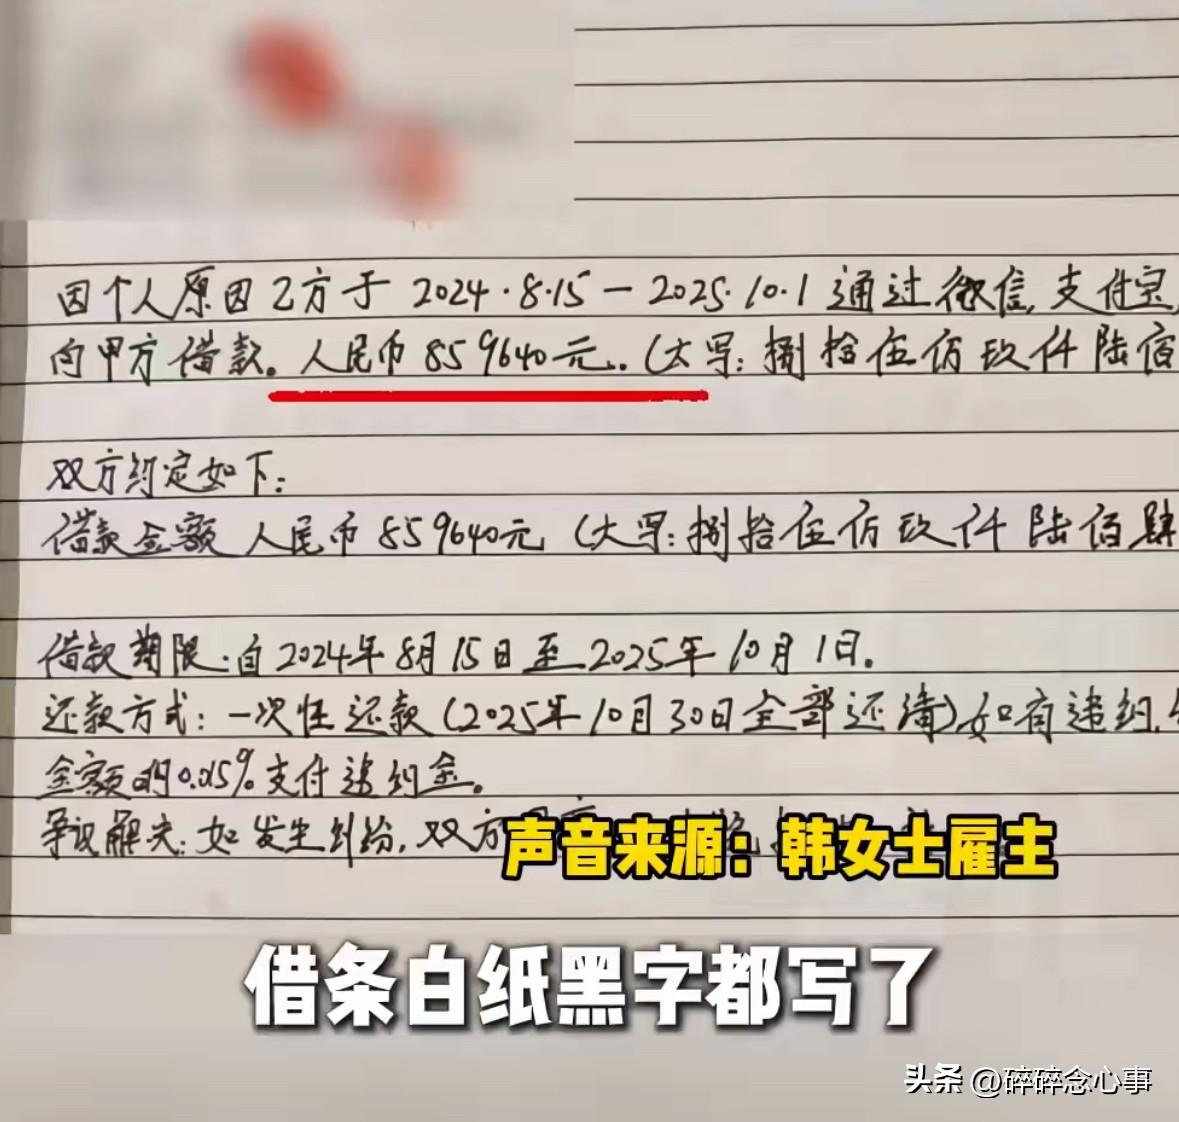 因个人原因乙方于 2024.8.15－2025.10.1 通过微信,支付宝,
向甲方借款。人民币 859640元..(大写:捌拾伍佰玖仟陆佰
双方约定如下:
借款金额 人民币 859640元 (大写:捌拾伍佰玖仟陆佰肆
借款期限:自2024年8月15日至2025年10月1日.
还款方式:一次性还款(2025年10月30日全部还清)如有违约,
金额的0.05%支付违约金。
争议解决:如发生纠纷,双方
声音来源：韩女士雇主
借条白纸黑字都写了
头条 @碎碎念心事